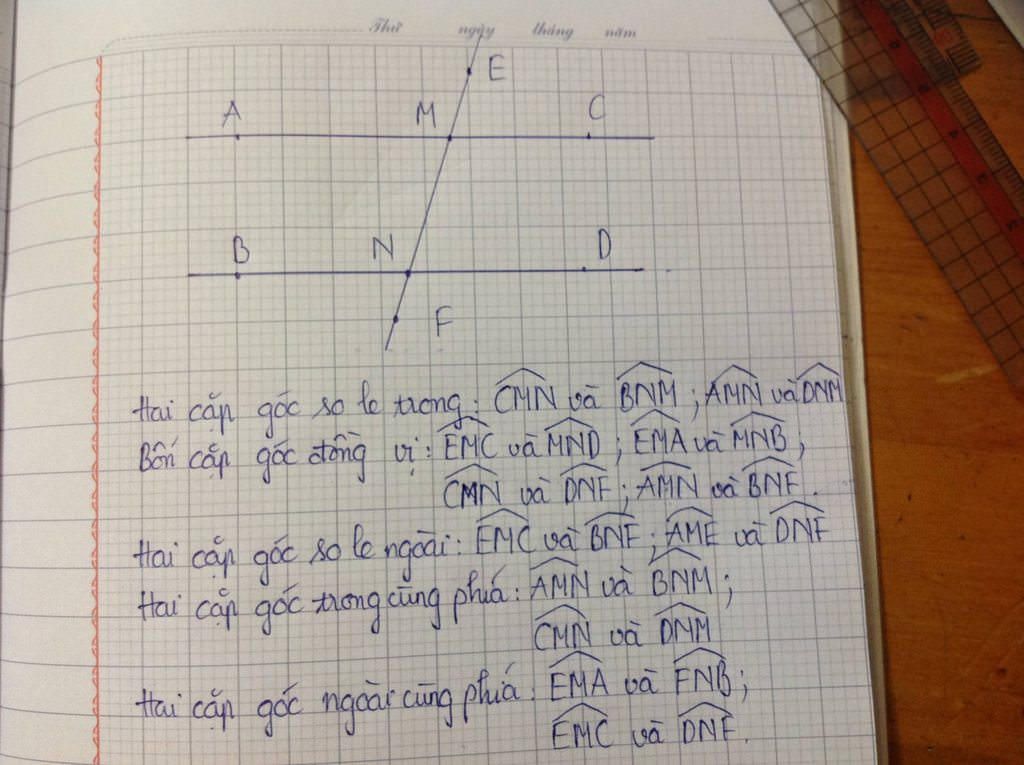 Thứ ngày tháng năm
E
A M C
B N D
F
Hai cặp góc so le trong: CMN và BNM; AMN và DNM
Bốn cặp góc đồng vị: EMC và MND; EMA và MNB;
CMN và DNF; AMN và BNF.
Hai cặp góc so le ngoài: EMC và BNF; AME và DNF
Hai cặp góc trong cùng phía: AMN và BNM;
CMN và DNM
Hai cặp góc ngoài cùng phía: EMA và FNB;
EMC và DNF.